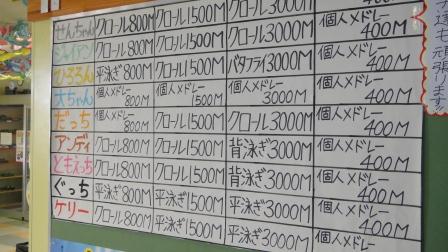 せんちゃん クロール800M クロール1500M クロール3000M 個人メドレー400M
ジャイアン クロール800M クロール1500M クロール3000M 個人メドレー400M
ひろろん 平泳ぎ800M クロール1500M バタフライ3000M 個人メドレー400M
大ちゃん 個人メドレー800M 個人メドレー1500M 個人メドレー3000M 個人メドレー400M
だっち 個人メドレー800M クロール1500M クロール3000M 個人メドレー400M
アンディ クロール800M クロール1500M 背泳ぎ3000M 個人メドレー400M
ともえっち クロール800M クロール1500M 背泳ぎ3000M 個人メドレー400M
ぐっち 平泳ぎ800M 平泳ぎ1500M 平泳ぎ3000M 個人メドレー400M
ケリー クロール800M 平泳ぎ1500M 平泳ぎ3000M 個人メドレー400M